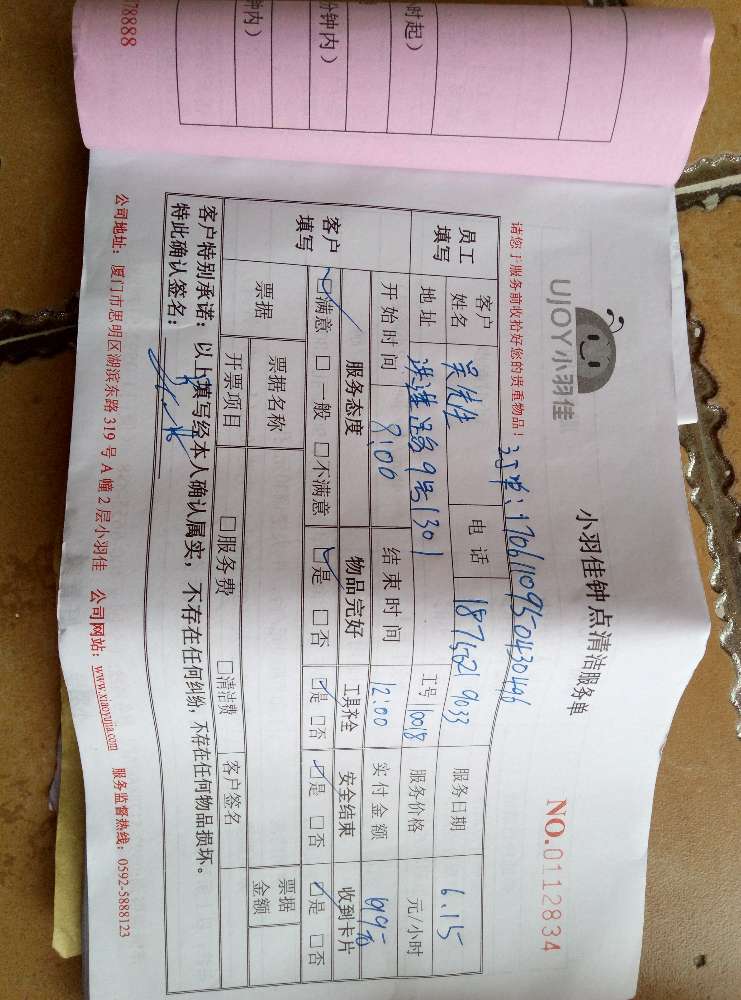 78888
时起）
分钟内）
钟内）
UJOY小羽佳
小羽佳钟点清洁服务单
NO.0112834
请您于服务前收拾好您的贵重物品！
员工填写
客户姓名
吴先生
电 话
服务日期
6.15
地址
9号1301
工号
10018
服务价格
元/小时
开始时间
9:00
结束时间
12:00
实付金额
客户填写
服务态度
物品完好
工具齐全
安全结束
收到卡片
☑满意 □一般 □不满意
☑是 □否
☑是 □否
☑是 □否
☑是 □否
票据
票据名称
客户签名
票据金额
开票项目
□服务费
□清洁费
客户特别承诺：以上填写经本人确认属实，不存在任何纠纷，不存在任何物品损坏。
特此确认签名：
公司地址：厦门市思明区湖滨东路 319 号 A 幢 2 层小羽佳 公司网站：www.xiaoyujia.com 服务监督热线：0592-5888123